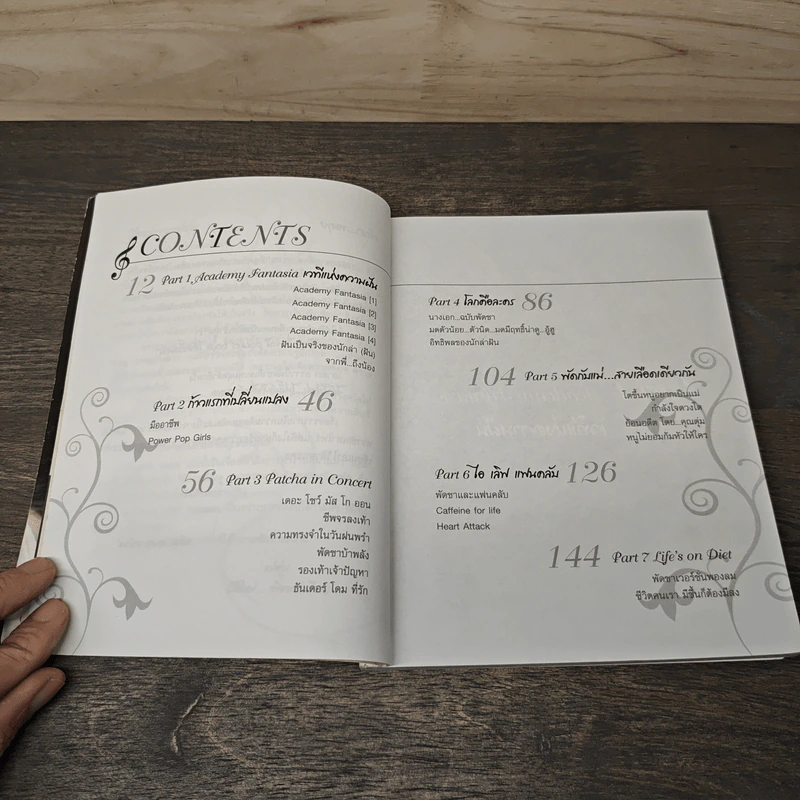 CONTENTS
12 Part 1 Academy Fantasia เวทีแห่งความฝัน
Academy Fantasia [1]
Academy Fantasia [2]
Academy Fantasia [3]
Academy Fantasia [4]
ฝันเป็นจริงของนักล่า (ฝัน)
จากพี่...ถึงน้อง
Part 2 ก้าวแรกที่เปลี่ยนแปลง 46
มืออาชีพ
Power Pop Girls
56 Part 3 Patcha in Concert
เดอะ โชว์ มัส โก ออน
ชีพจรลงเท้า
ความทรงจำในวันฝนพรำ
พัดชาบ้าพลัง
รองเท้าเจ้าปัญหา
ธันเดอร์ โดม ที่รัก
Part 4 โลกคือละคร 86
นางเอก...ฉบับพัดชา
มดตัวน้อย...ตัวนิด...มดมีฤทธิ์น่าดู...อู้ฮู
อิทธิพลของนักล่าฝัน
104 Part 5 พัดกับแม่...สายเลือดเดียวกัน
โตขึ้นหนูอยากเป็นแม่
กำลังใจดวงโต
ย้อนอดีต โดย...คุณตุ่ม
หนูไม่ยอมก้มหัวให้ใคร
Part 6 ไอ เลิฟ แฟนคลับ 126
พัดชาและแฟนคลับ
Caffeine for life
Heart Attack
144 Part 7 Life's on Diet
พัดชาเวอร์ชั่นพองลม
ชีวิตคนเรา มีขึ้นก็ต้องมีลง